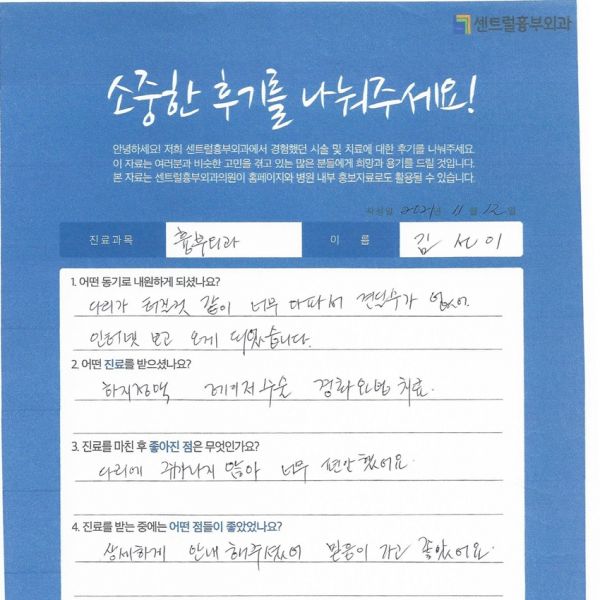 센트럴흉부외과
소중한 후기를 나눠주세요!
안녕하세요! 저희 센트럴흉부외과에서 경험했던 시술 및 치료에 대한 후기를 나눠주세요.
이 자료는 여러분과 비슷한 고민을 겪고 있는 많은 분들에게 희망과 용기를 드릴 것입니다.
본 자료는 센트럴흉부외과의원이 홈페이지와 병원 내부 홍보자료로도 활용될 수 있습니다.
작성일 2021년 11월 12일
진료과목 흉부외과 이 름 김
1. 어떤 동기로 내원하게 되셨나요?
다리가 터질것 같이 너무 아파서 견딜수가 없어
인터넷 보고 오게 되었습니다.
2. 어떤 진료를 받으셨나요?
하지정맥 레이저수술 경화요법 치료
3. 진료를 마친 후 좋아진 점은 무엇인가요?
다리에 쥐가나지 않아 너무 편안했어요
4. 진료를 받는 중에는 어떤 점들이 좋았었나요?
상세하게 안내해주셨어 믿음이 가고 좋았어요.